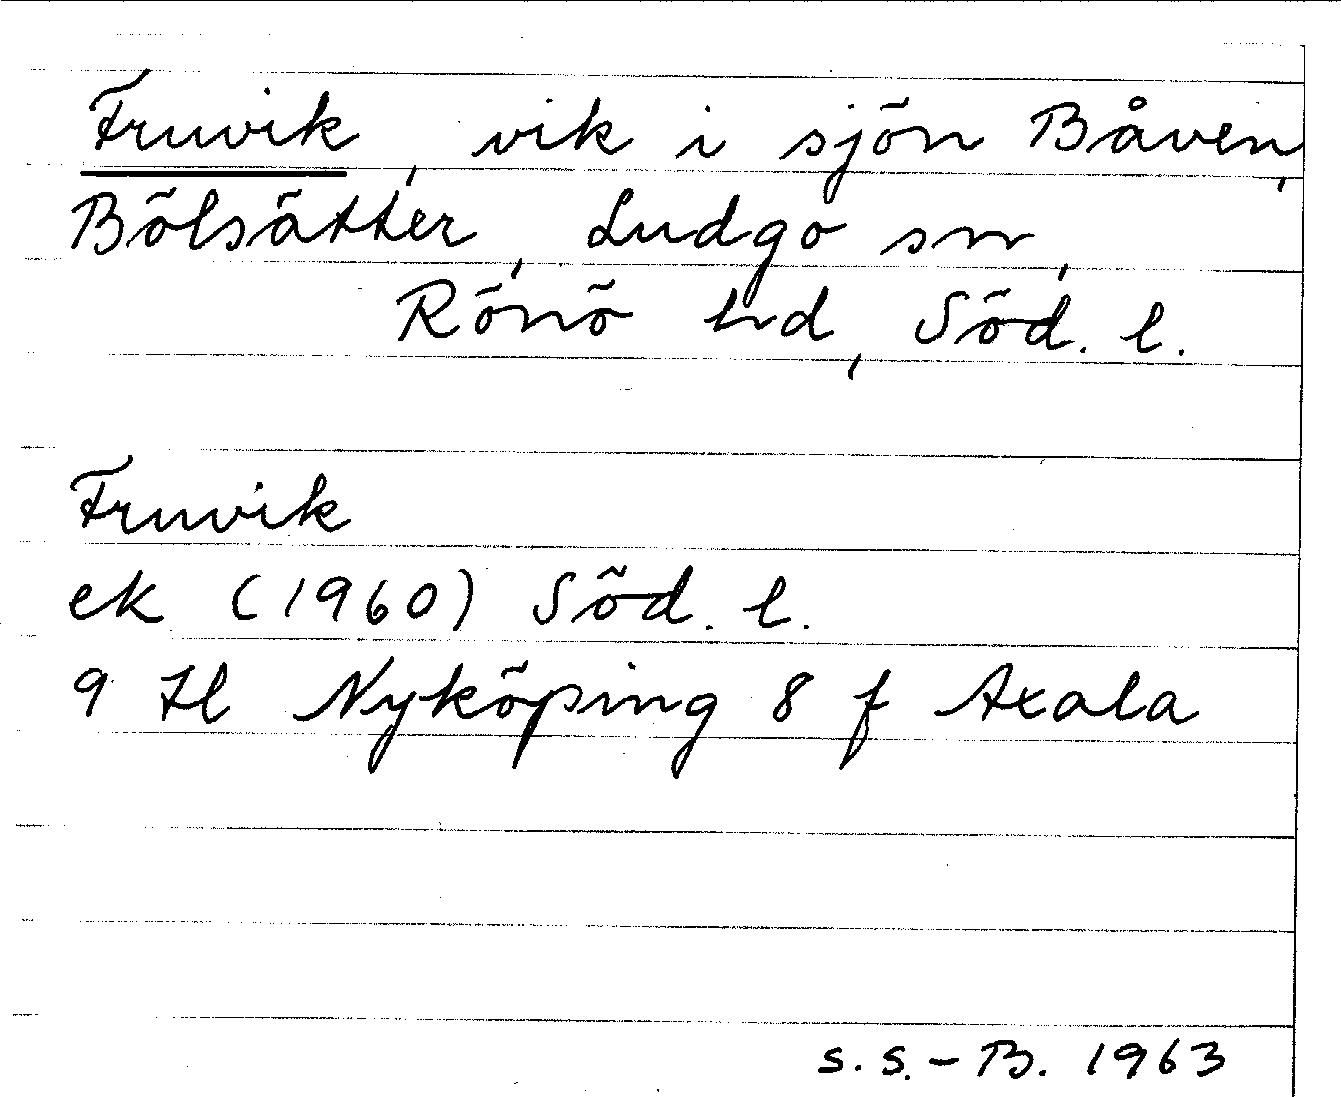 Fruvik, vik i sjön Båven,
Bölsätter, Ludgo sn,
Rönö hd, Söd. l.
Fruvik
ek (1960) Söd. l.
9 H Nyköping 8 f Axala
S. S. - B. 1963